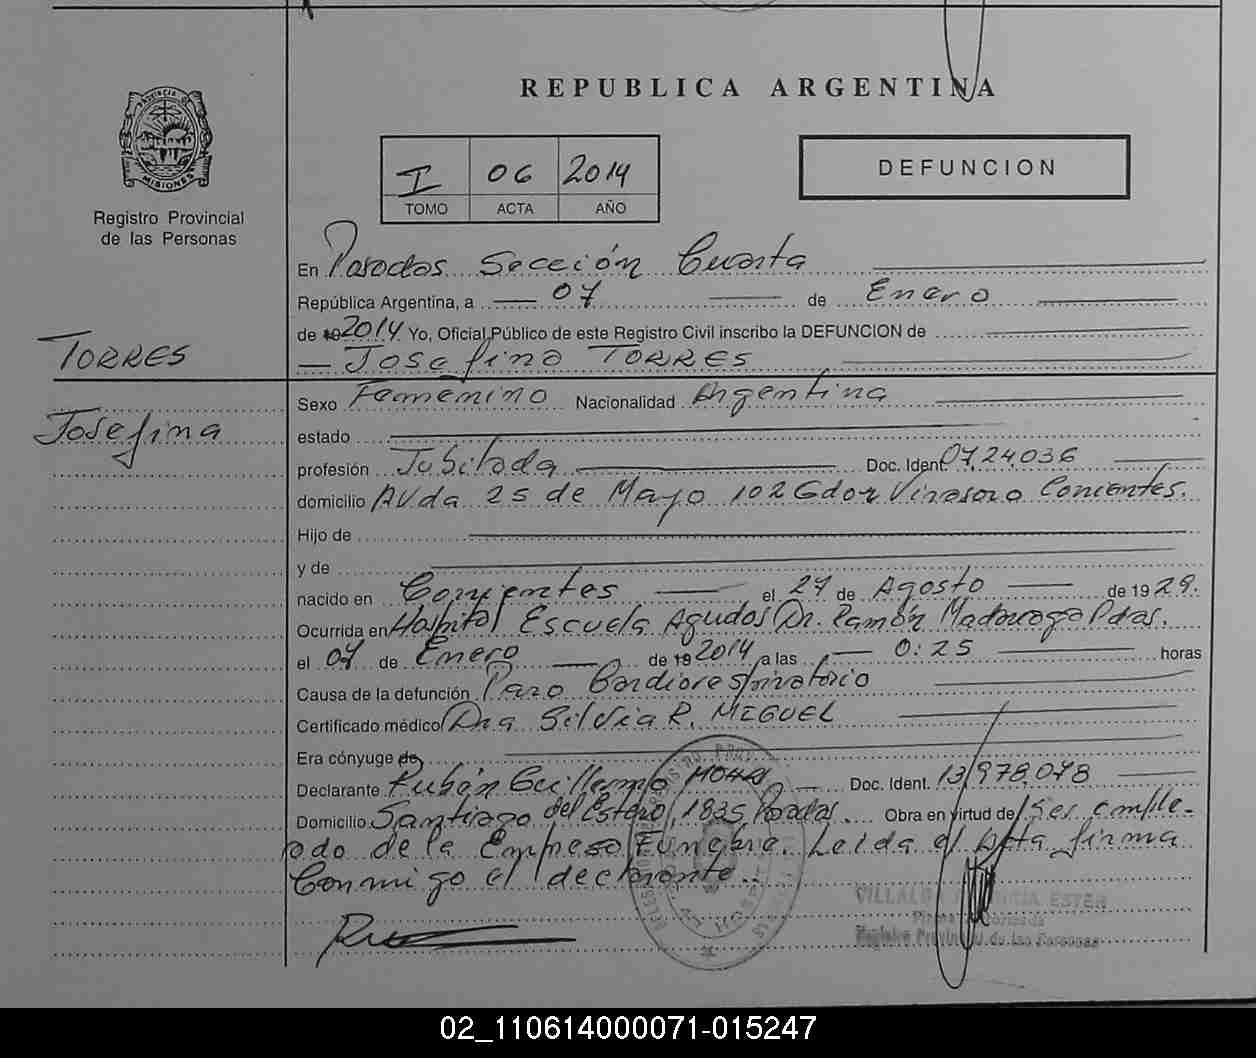 REPUBLICA ARGENTINA
PROVINCIA D
MISIONES
Registro Provincial
de las Personas
I 06 2014
TOMO ACTA AÑO
DEFUNCION
En Posadas Sección Cuarta
República Argentina, a 07 de Enero
de 19 2014 Yo, Oficial Público de este Registro Civil inscribo la DEFUNCION de
TORRES
Josefina TORRES
Josefina
Sexo Femenino Nacionalidad Argentina
estado
profesión Jubilada Doc. Ident. 0724.036
domicilio Avda 25 de Mayo 102 Gdor Virasoro Corrientes.
Hijo de
y de
nacido en Corrientes el 27 de Agosto de 1929.
Ocurrida en Hospital Escuela Agudos Dr. Ramón Madariaga Pdas.
el 07 de Enero de 19 2014 a las 0:25 horas
Causa de la defunción Paro Cardiorespiratorio
Certificado médico Dra Silvia R. MIGUEL
Era cónyuge de
Declarante Rubén Guillermo Doc. Ident. 13,978,078
Domicilio Santiago del Estero, 1835 Posadas. Obra en virtud de Ser emple-
ado de la Empresa Fúnebre. Leida el Acta firma
Conmigo el declarante.
VILLALBA ESTER
Registro Provincial de las Personas
02_110614000071-015247